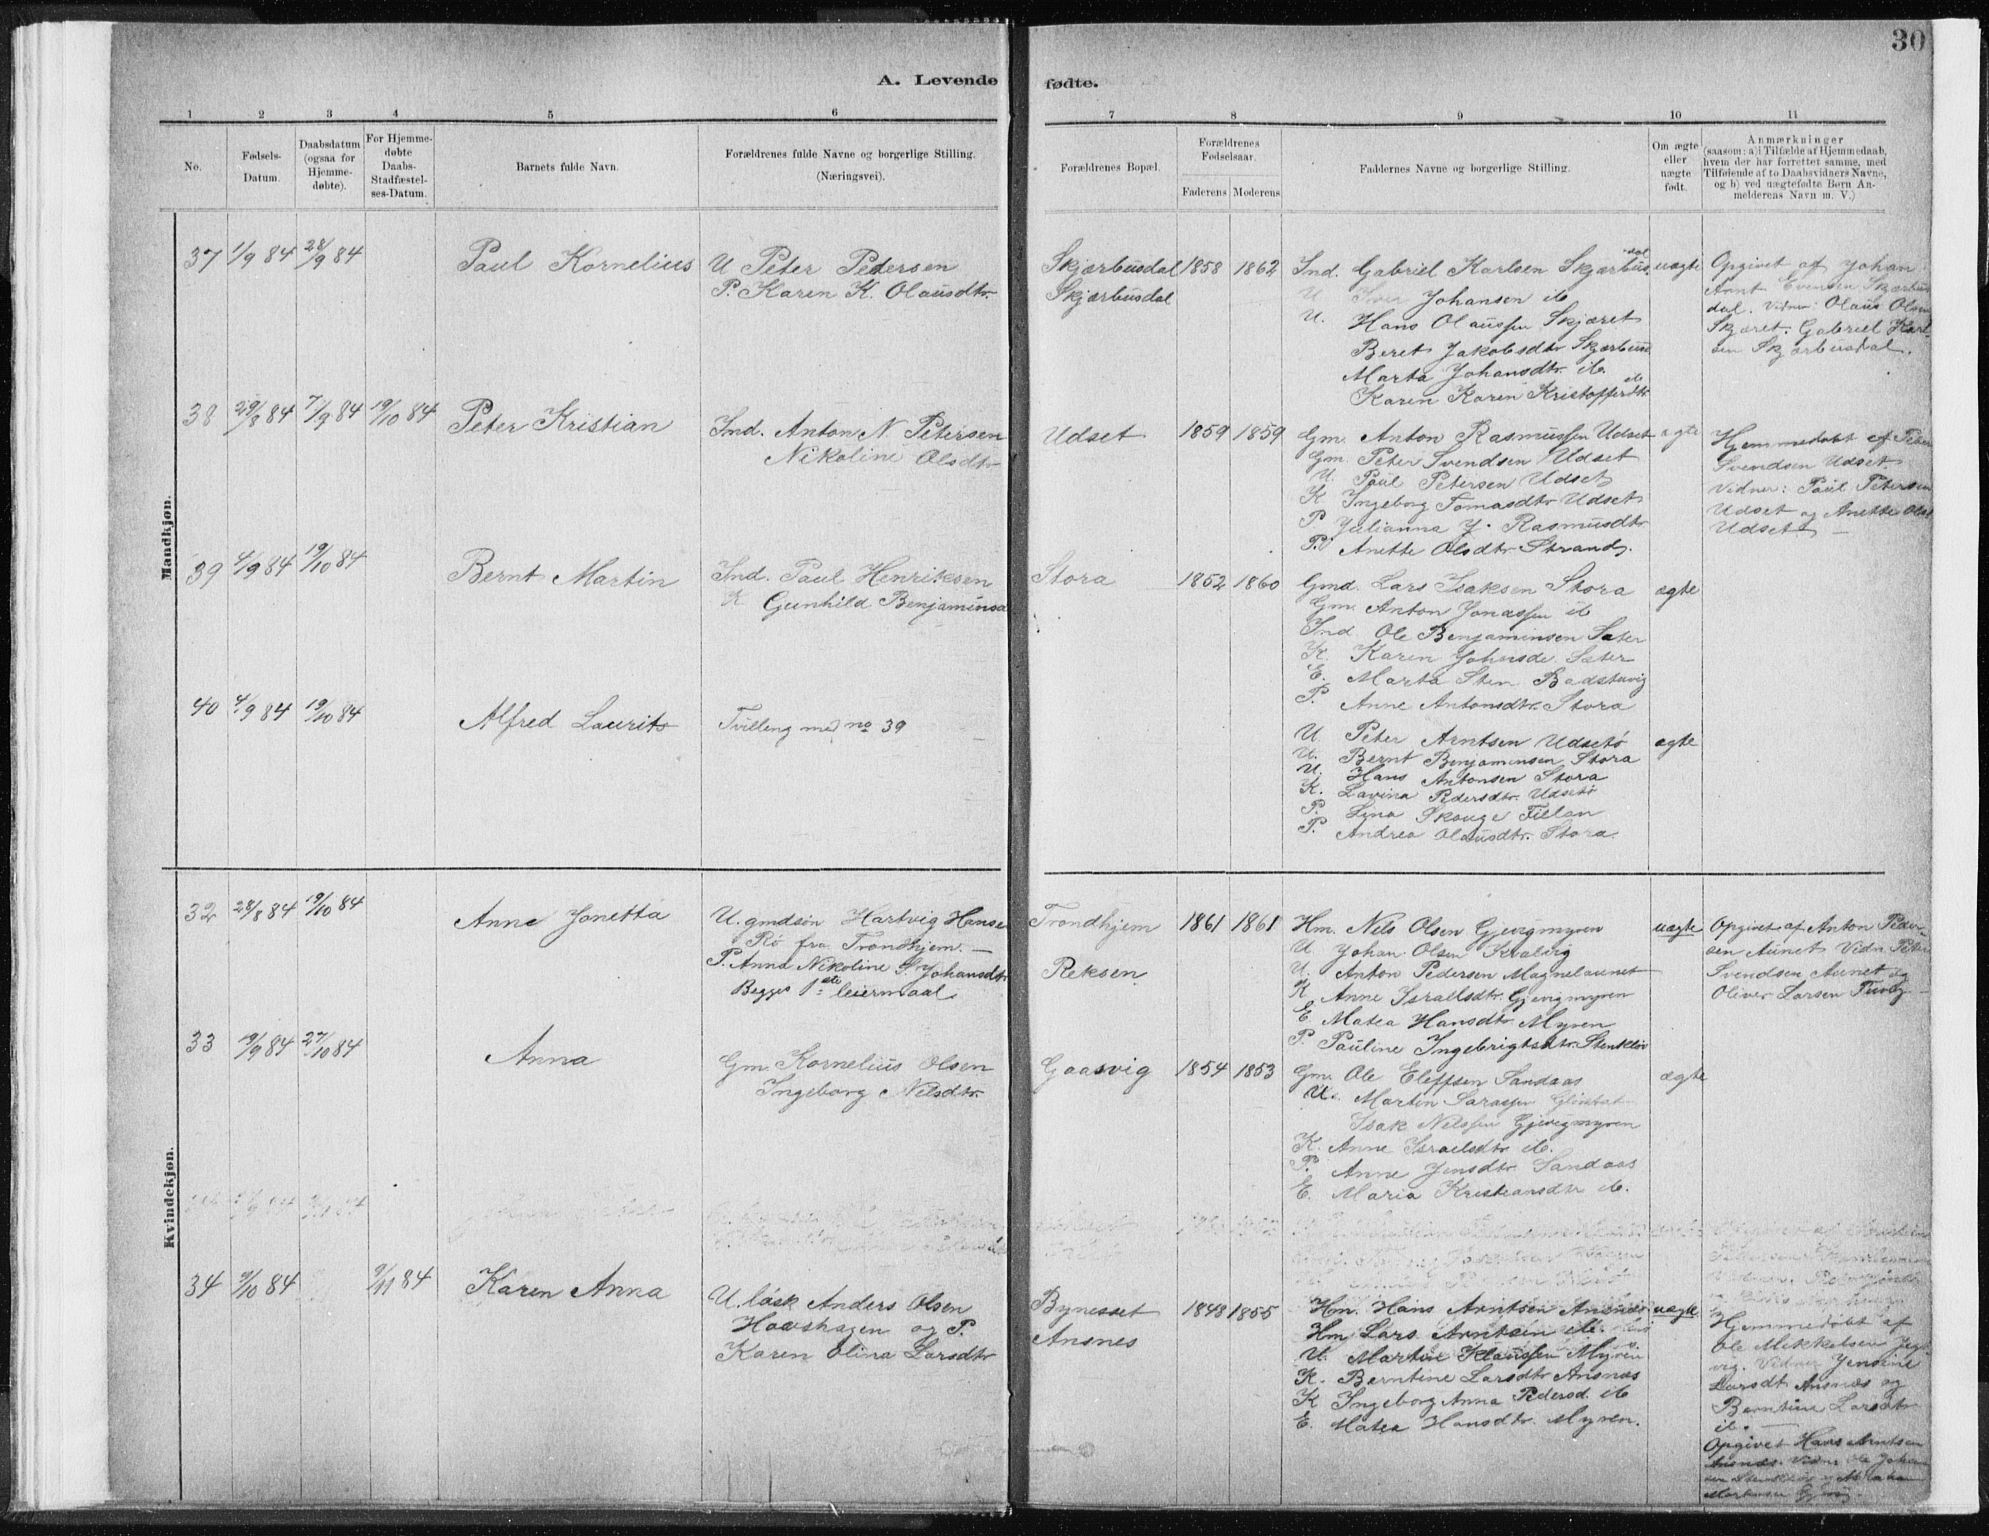 30
A. Levende
fødte.
1 2 3 4 5 6 7 8 9 10 11
No.
Fødsels-
Datum.
Daabsdatum
(ogsaa for
Hjemme-
døbte).
For Hjemme-
døbte
Daabs-
Stadfæstel-
ses-Datum.
Barnets fulde Navn.
Forældrenes fulde Navne og borgerlige Stilling.
(Næringsvei).
Forældrenes Bopæl.
Forældrenes
Fødselsaar.
Faderens Moderens
Faddernes Navne og borgerlige Stilling.
Om ægte
eller
uægte
født.
Anmærkninger
(saasom: a) i Tilfælde af Hjemmedaab,
hvem der har forrettet samme, med
Tilføiende af to Daabsvidners Navne,
og b) ved uægtefødte Børn An-
melderens Navn m. V.)
Mandkjøn.
37 1/9 84 28/9 84
Paul Kornelius
U Peter Pedersen
P. Karen K. Olausdtr.
Skjærbusdal
Skjærbusdal
1858 1862
Ind. Gabriel Karlsen Skjærbusdal
U Johansen ib
U. Hans Olaussen Skjæret
Beret Jakobsdtr Skjærbusd
Marta Johansdtr. ib.
Karen Karen Kristoffersdtr ib
uægte
Opgivet af Johan
Arnt Evensen Skjærbus
dal. Vidner: Olaus Olsen
Skjæret. Gabriel Karl
sen Skjærbusdal.
38 29/8 84 7/9 84 19/10 84
Peter Kristian
Ind. Anton N. Petersen
Nikoline Olsdtr
Udset
1859 1859
Gm. Anton Rasmussen Udset
Gm. Peter Svendsen Udset
U. Paul Petersen Udset
K Ingeborg Tomasdtr Udset
P Julianna J. Rasmusdtr
P. Anette Olsdtr Strand.
ægte
Hjemmedøbt af Peter
Svendsen Udset.
Vidner: Paul Petersen
Udset og Anette Olsd
Udset —
39 4/9 84 19/10 84
Bernt Martin
Ind. Paul Henriksen
K Gunhild Benjaminsd
Stora
1852 1860
Gmd. Lars Isaksen Stora
Gm. Anton Jonassen ib
Ind Ole Benjaminsen Sæter
K. Karen Johnsdr. Sæter
E. Marta Sten Badstuvig
P. Anne Antonsdtr. Stora
ægte
40 4/9 84 19/10 84
Alfred Laurits
Tvilling med no 39
U Peter Arntsen Udsetø
U. Bernt Benjaminsen Stora
U. Hans Antonsen Stora
K. Lavina Pedersdtr. Udsetø
P. Lina Skauge Fillan
P. Andrea Olausdtr. Stora.
ægte
Kvindekjøn.
32 28/8 84 19/10 84
Anne Jonetta
U. gmdsøn Hartvig Hansen
Rø fra Trondhjem. —
P. Anna Nikoline Johansdtr
Begges 1ste leiermaal
Trondhjem
Reksen
1861 1861
Hm. Nils Olsen Gjevigmyren
U Johan Olsen Kvalvig
U. Anton Pedersen Magnelaunet
K Anne Israelsdtr. Gjevigmyren
E Matea Hansdtr. Myren
P. Pauline Ingebrigtsdtr. Stenkløv
uægte
Opgivet af Anton Peder-
sen Aunet Vidn Peter
Svendsen Aunet og
Oliver Larsen
33 19/9 84 27/10 84
Anna
Gm. Kornelius Olsen
Ingeborg Nilsdtr.
Gaasvig
1854 1853
Gm. Ole Eleffsen Sandaas
U. Martin
Isak Nilssen Gjevigmyren
K. Anne Israelsdtr ib.
P. Anne Jensdtr. Sandaas
E. Maria Kristiansdtr ib.
ægte
34 9/10 84 9/11 84
Karen Anna
U. løsk Anders Olsen
Haveshagen og P.
Karen Elina Larsdtr
Bynesset
Ansnes
1848 1855
Hm. Hans Arntsen Ansnes
Hm Lars Arntsen ib.
U. Martin Klaussen Myren
K. Berntine Larsdtr Ansnæs
K Ingeborg Anna Pedersd. ib
E. Matea Hansdtr. Myren.
uægte
Hjemmedøbt af
Ole Mikkelsen
vig. Vidner Jensine
Larsdt Ansnæs og
Berntine Larsdtr
ib.
Opgivet Hans Arntsen
Ansnæs. Vidn Ole Johan